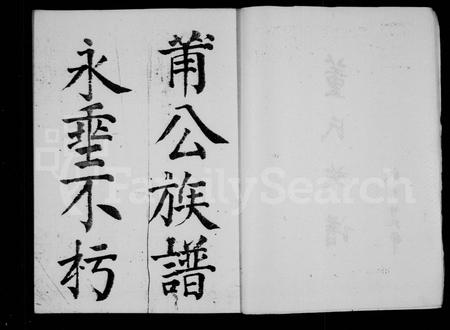 莆公族譜
永垂不朽
FamilySearch